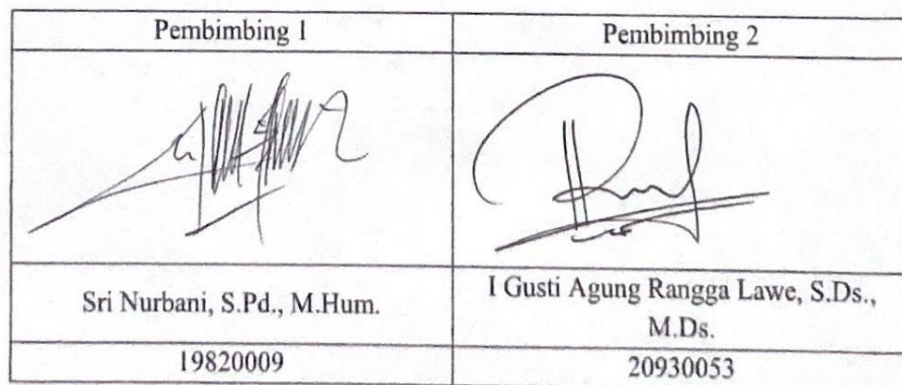 Pembimbing 1
Pembimbing 2
Sri Nurbani, S.Pd., M.Hum.
I Gusti Agung Rangga Lawe, S.Ds.,
M.Ds.
19820009
20930053